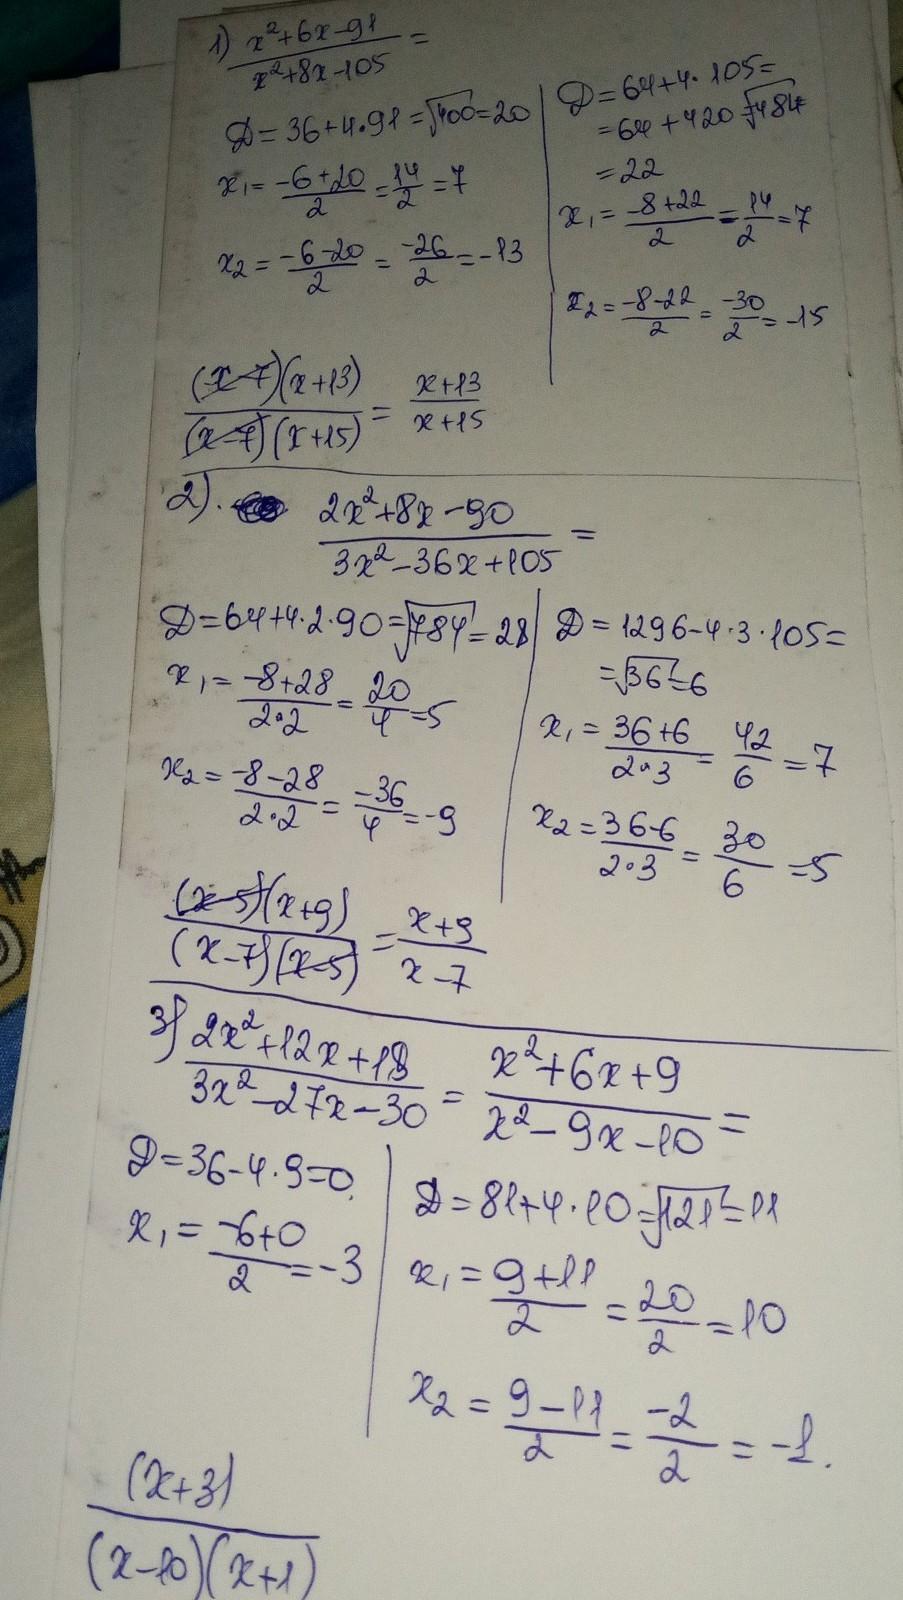 1) (x²+6x-91)/(x²+8x-105) =
D=36+4·91=√400=20
x₁=(-6+20)/2=14/2=7
x₂=(-6-20)/2=-26/2=-13
D=64+4·105=
=64+420=√484
=22
x₁=(-8+22)/2=14/2=7
x₂=(-8-22)/2=-30/2=-15
((x-7)(x+13))/((x-7)(x+15))=(x+13)/(x+15)
2). (2x²+8x-90)/(3x²-36x+105)=
D=64+4·2·90=√784=28
x₁=(-8+28)/(2·2)=20/4=5
x₂=(-8-28)/(2·2)=-36/4=-9
D=1296-4·3·105=
=√36=6
x₁=(36+6)/(2·3)=42/6=7
x₂=(36-6)/(2·3)=30/6=5
((x-5)(x+9))/((x-7)(x-5))=(x+9)/(x-7)
3) (2x²+12x+18)/(3x²-27x-30)=(x²+6x+9)/(x²-9x-10)=
D=36-4·9=0
x₁=(-6+0)/2=-3
D=81+4·10=√121=11
x₁=(9+11)/2=20/2=10
x₂=(9-11)/2=-2/2=-1.
(x+3)/((x-10)(x+1))